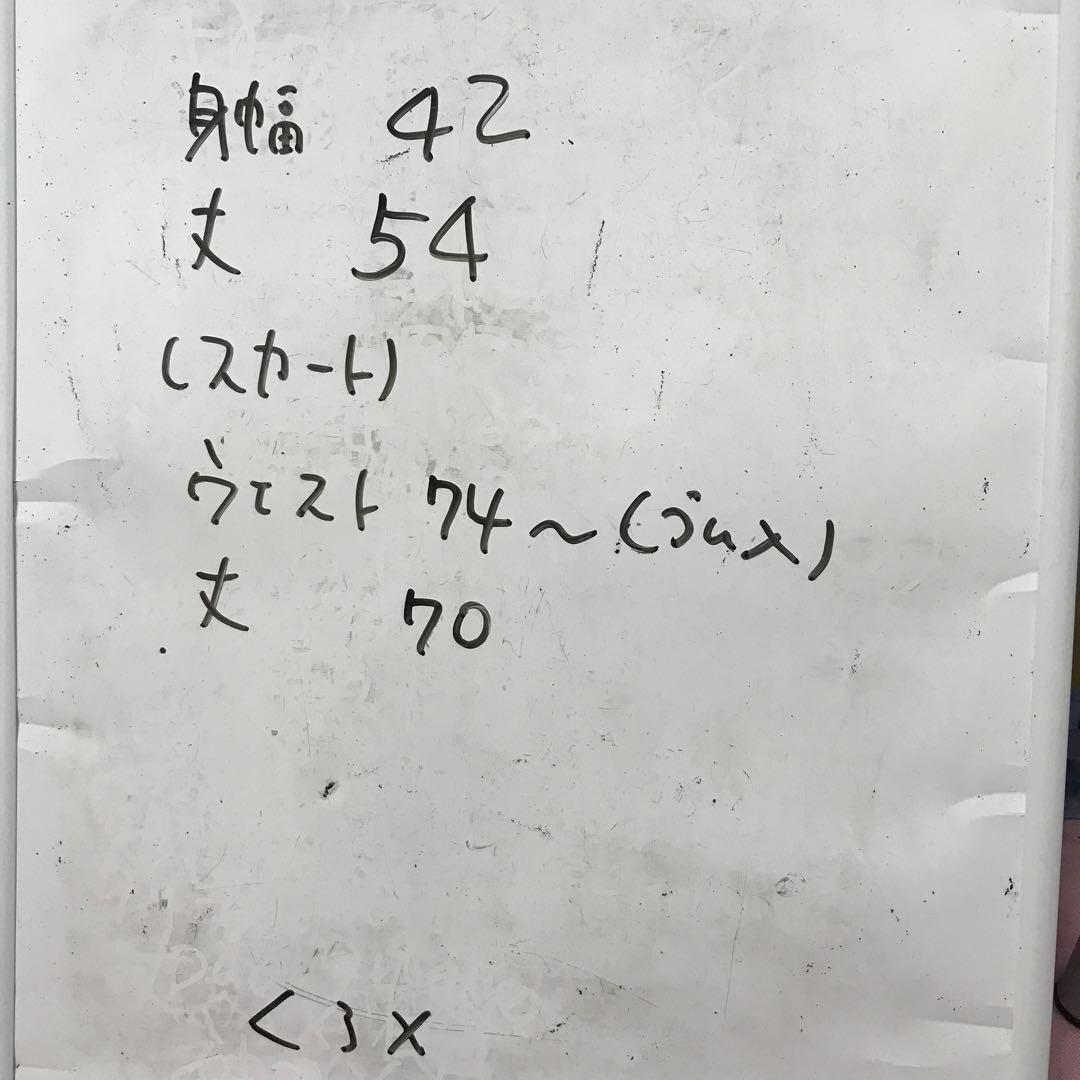 身幅 42
丈 54
(スカート)
ウエスト 74〜(ゴムメ)
丈 70
く3×